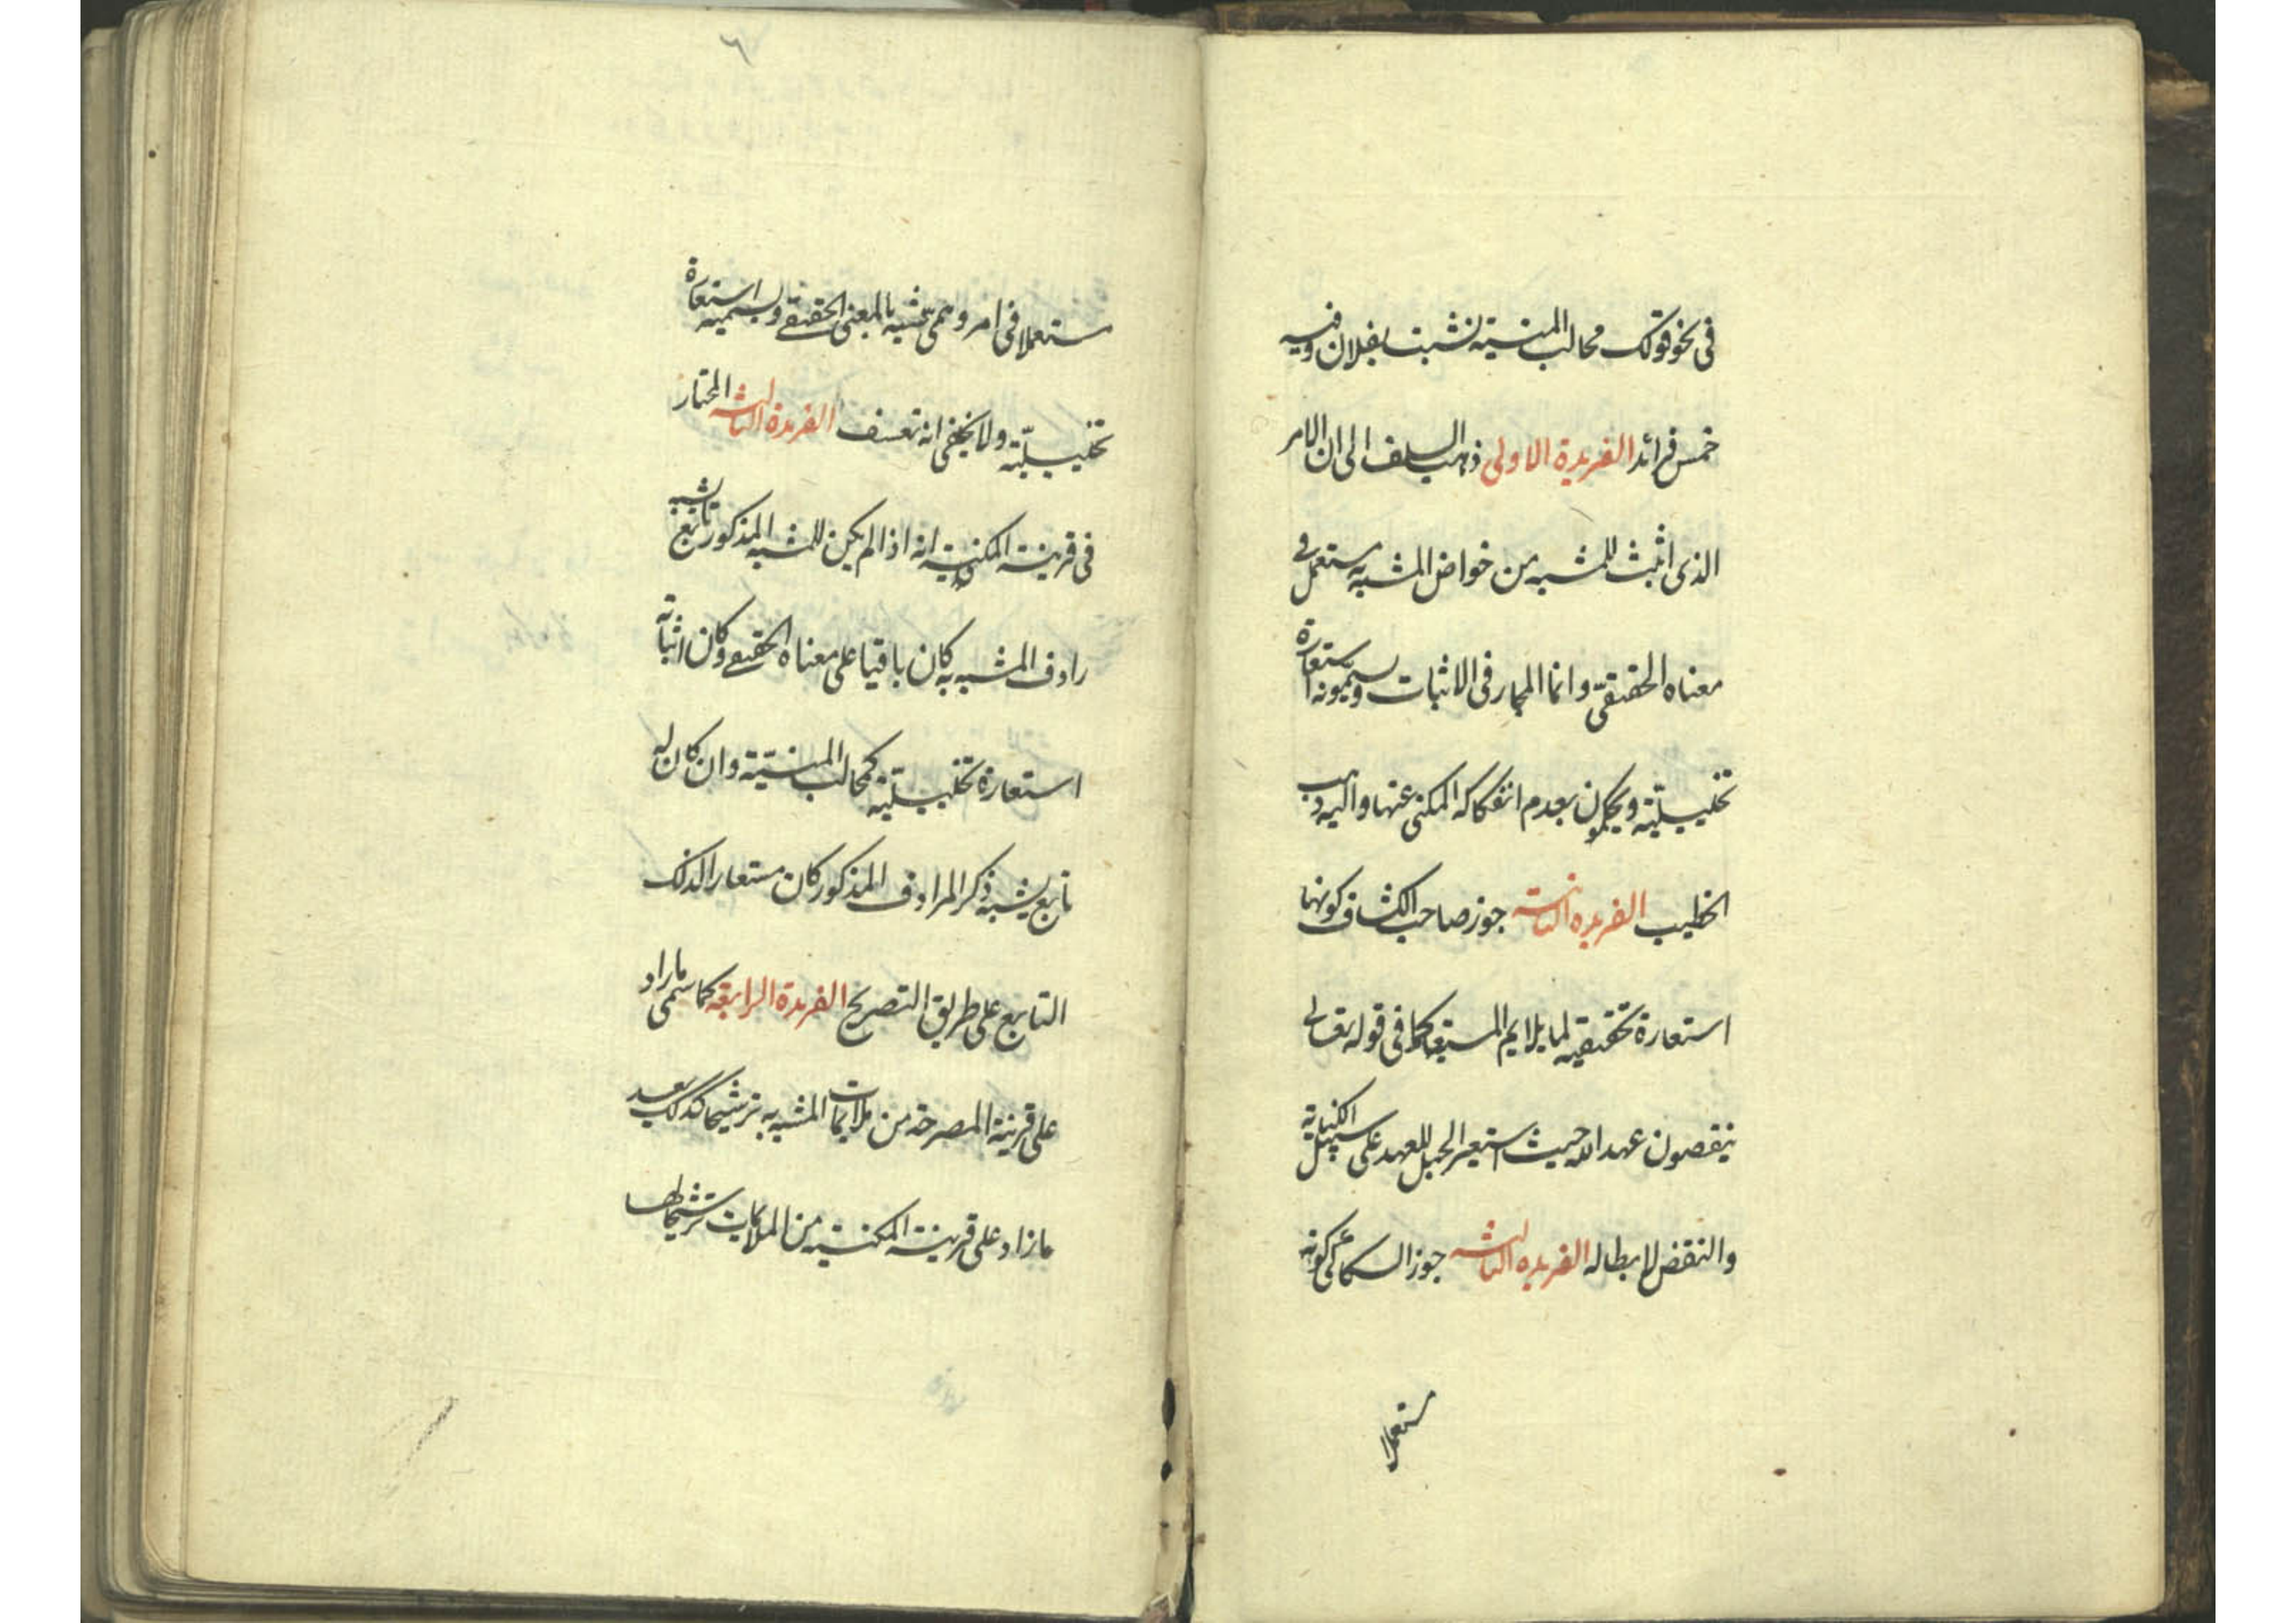 فى نحو قولك مخالب المنية نشبت بفلان وفيه
خمس فرائد الفريدة الاولى ذهب السلف الى ان الامر
الذى اثبت للمشبه من خواص المشبه به مستعمل فى
معناه الحقيقى وانما المجاز فى الاثبات ويسمونه استعارة
تخييلية ويحكمون بعدم انفكاكه المكنى عنها واليه ذهب
الخطيب الفريده الثانية جوز صاحب الكشاف كونها
استعارة تحقيقية لما يلايم المستعار كما فى قوله تعالى
ينقضون عهد الله حيث استعير الحبل للعهد على سبيل الكناية
والنقض لابطاله الفريده الثالثه جوز السكاكى كونه
مستعملا
٦
مستعملا فى امر وهمى شبيه بالمعنى الحقيقى ويسميه استعارة
تخييلية ولا يخفى انه تعسف الفريدة الثالثه المختار
فى قرينة المكنية انه اذا لم يكن للمشبه المذكور تابع يشبه
رادف المشبه به كان باقيا على معناه الحقيقى وكان اثباته
استعارة تخييلية كمخالب المنية وان كان له
تابع يشبه ذكر المرادف المذكور كان مستعارا لذلك
التابع على طريق التصريح الفريدة الرابعة كما سمى ما زاد
على قرينة المصرحة من ملايمات المشبه به ترشيحا كذلك يعد
ما زاد على قرينة المكنية من الملايمات ترشيحا لها